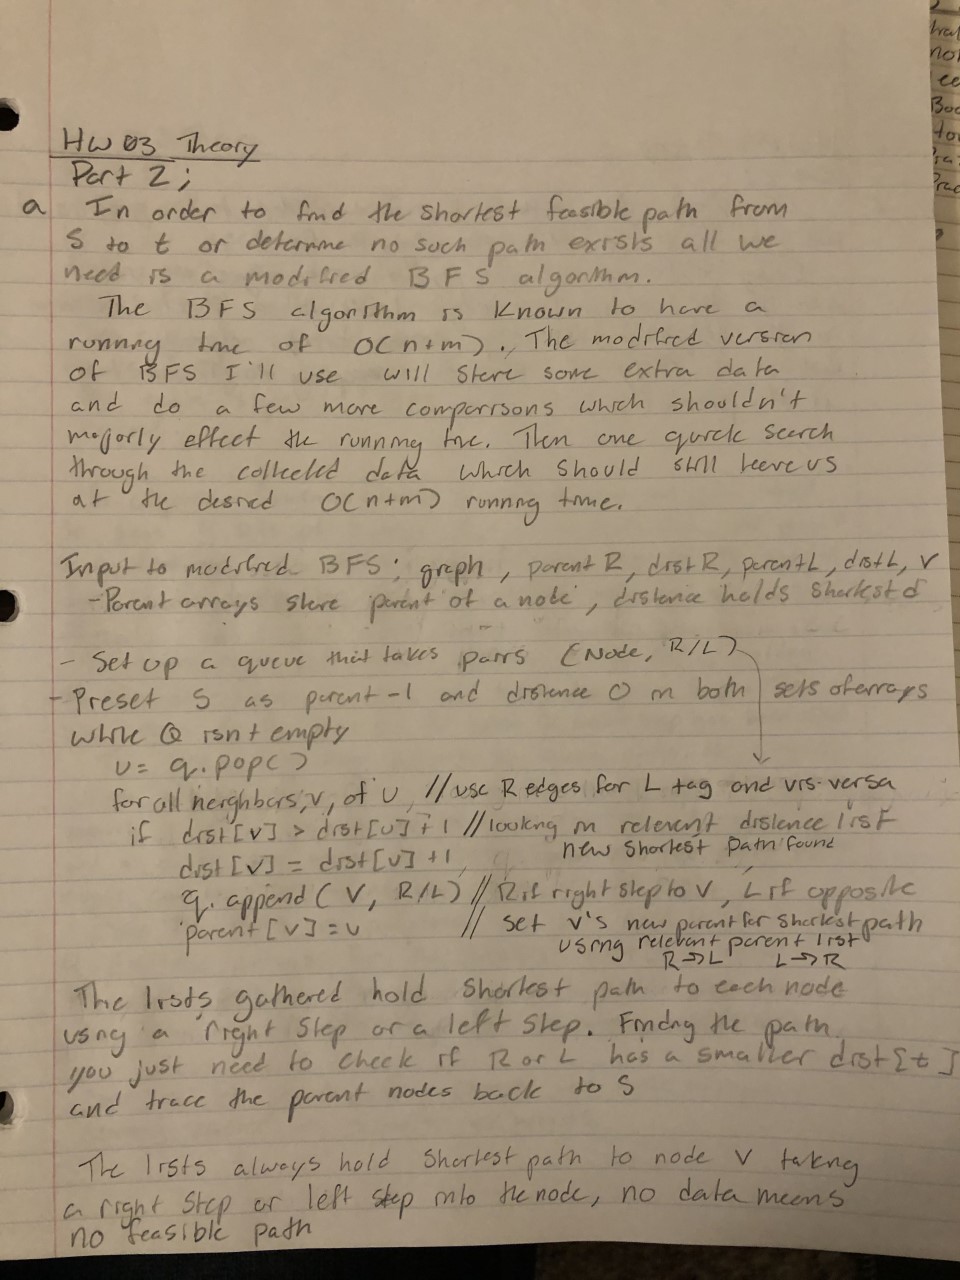 HW 03 Theory
Part 2;
a In order to find the shortest feasible path from
S to t or determine no such path exists all we
need is a modified BFS algorithm.
The BFS algorithm is known to have a
running time of O(n+m). The modified version
of BFS I'll use will store some extra data
and do a few more comparisons which shouldn't
majorly effect the running time. Then one quick search
through the collected data which should still leave us
at the desired O(n+m) running time.
Input to modified BFS: graph, parent R, dist R, parent L, dist L, v
-Parent arrays store parent of a node, distance holds shortest d
- Set up a queue that takes pairs (Node, R/L)
- Preset S as parent -1 and distance 0 in both sets of arrays
while Q isnt empty
u = q.pop()
for all neighbors, v, of u //use R edges for L tag and vis-versa
if dist[v] > dist[u] + 1 //looking in relevent distence list
new shortest path found
dist[v] = dist[u] + 1
q.append(v, R/L) // R if right step to v, L if opposite
parent[v] = u // set v's new parent for shortest path
using relevent parent list
R→L L→R
The lists gathered hold shortest path to each node
using a right step or a left step. Finding the path
you just need to check if R or L has a smaller dist[t]
and trace the parent nodes back to S
The lists always hold shortest path to node v taking
a right step or left step into the node, no data means
no feasible path